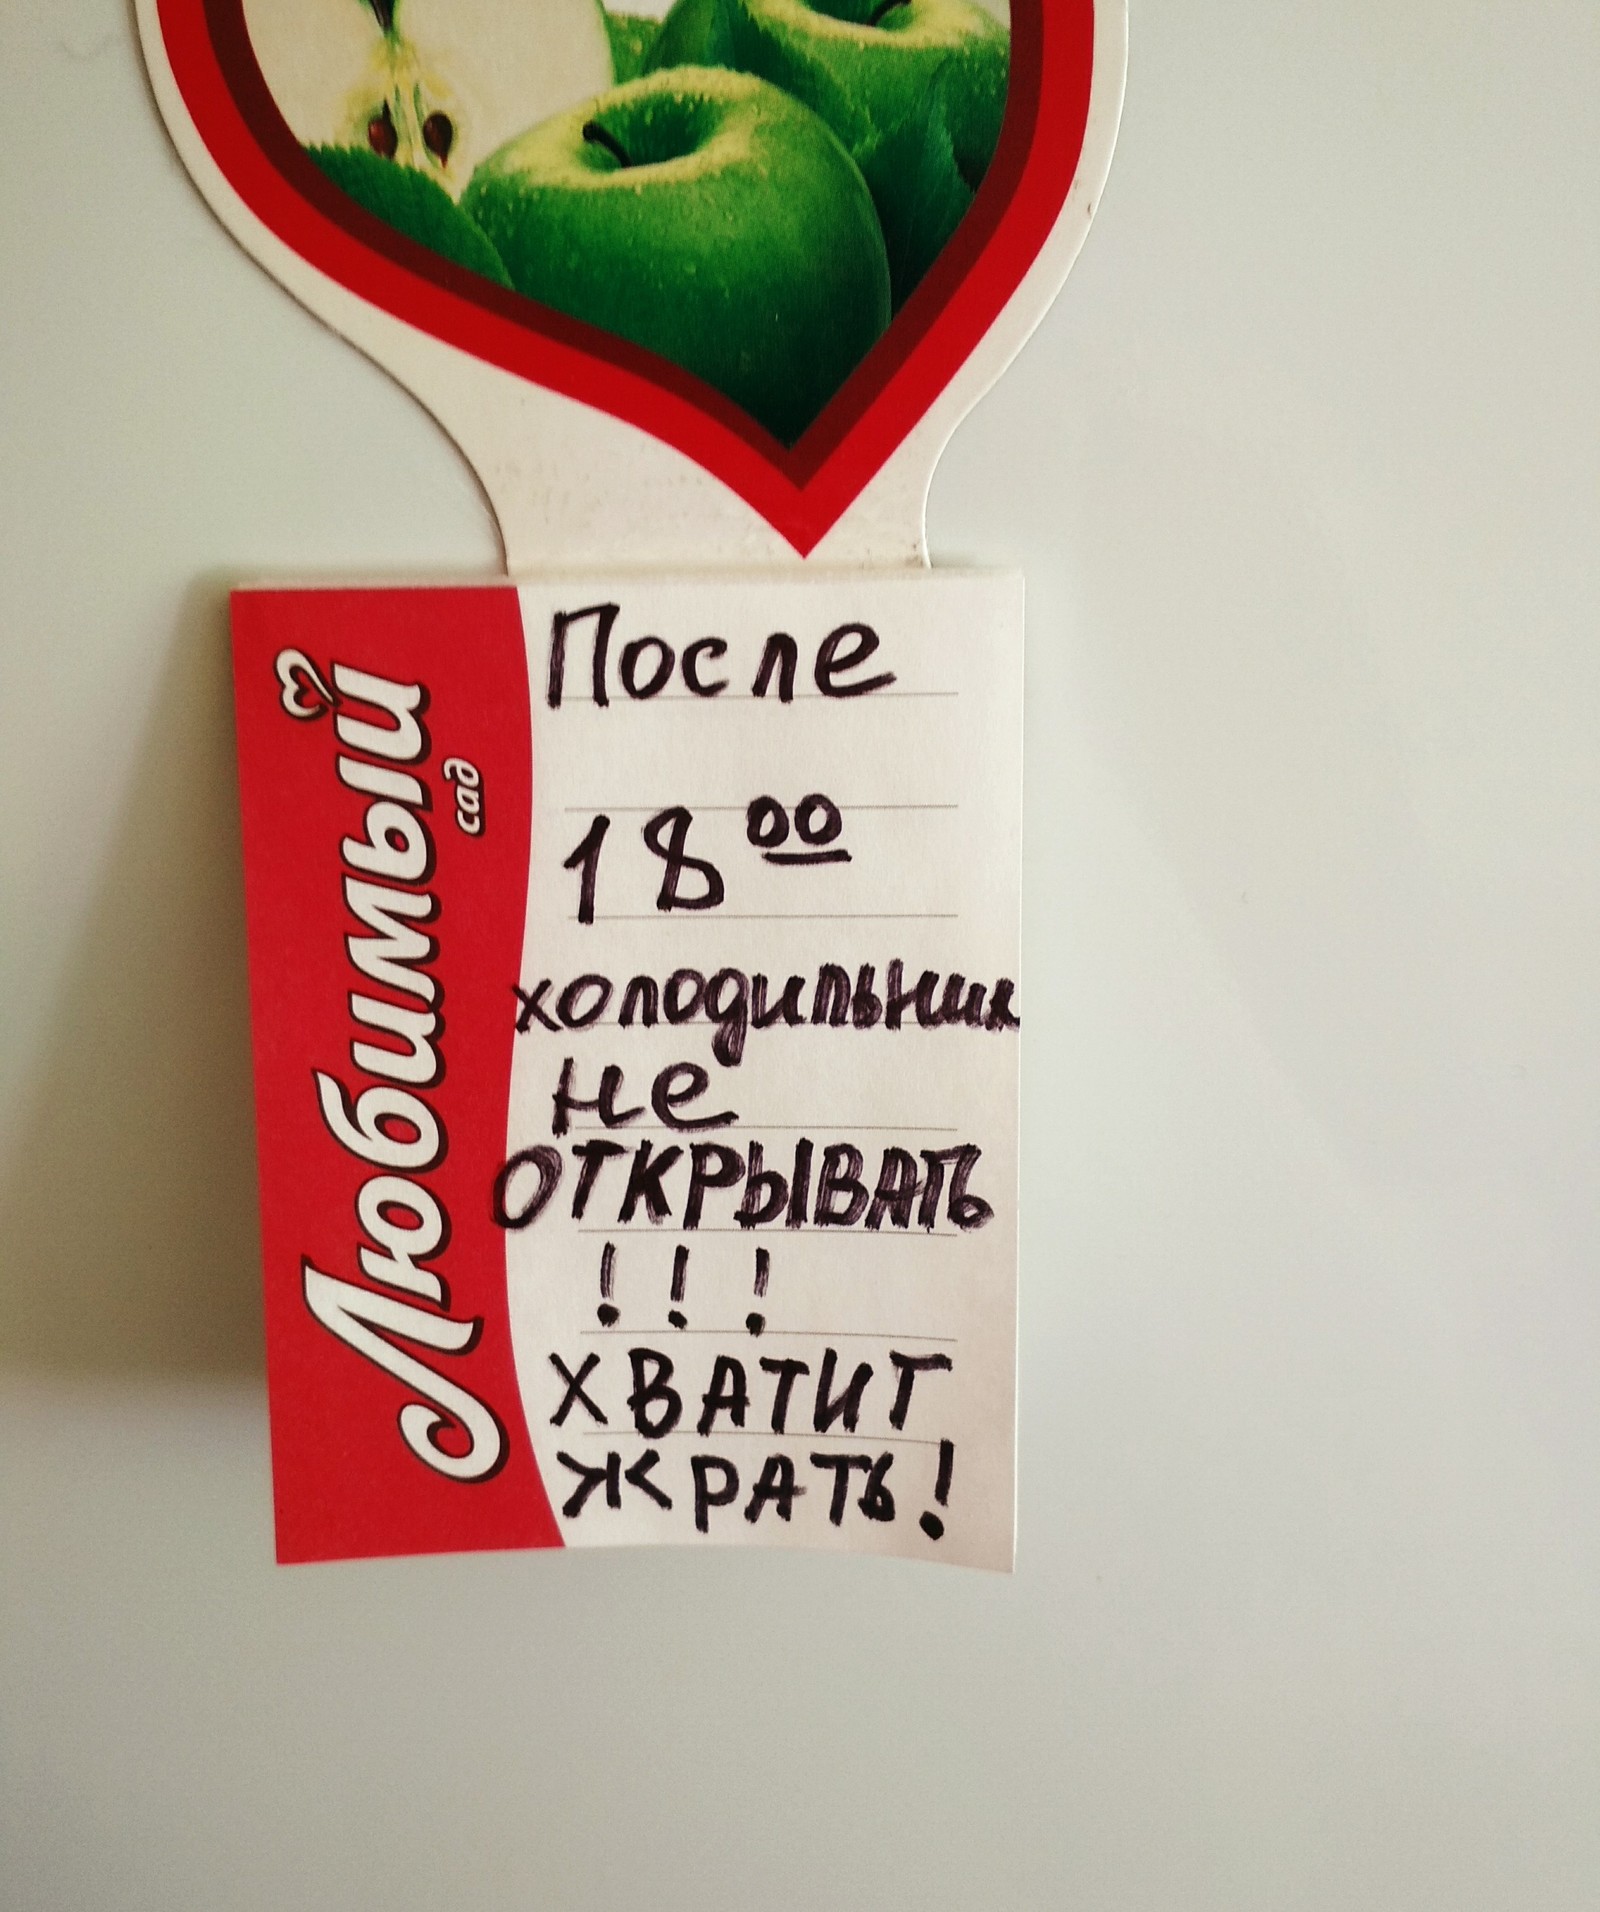 Любимый
сад
После
18 00
холодильник
не
ОТКРЫВАТЬ
!!!
ХВАТИТ
ЖРАТЬ!